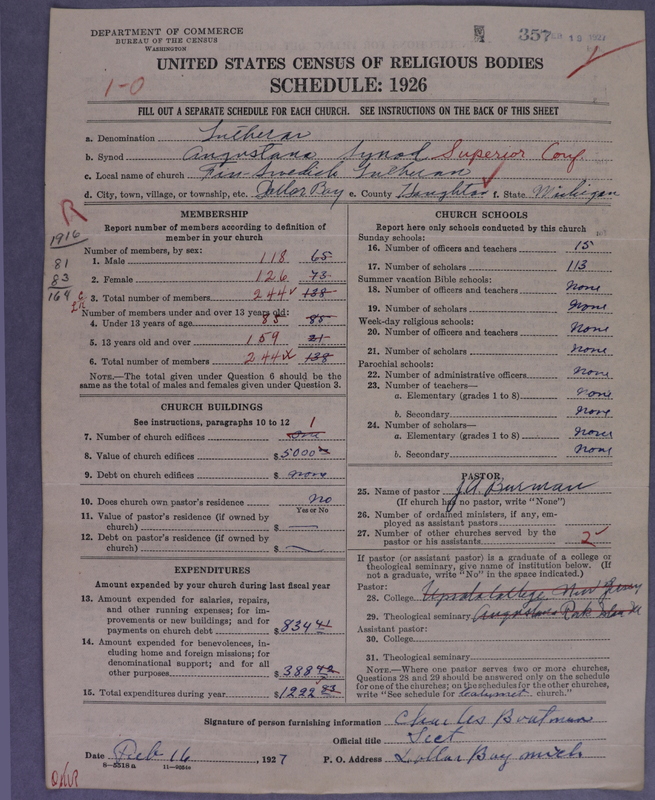 DEPARTMENT OF COMMERCE
BUREAU OF THE CENSUS
WASHINGTON
357
15 1927
1-0
UNITED STATES CENSUS OF RELIGIOUS BODIES
SCHEDULE: 1926
FILL OUT A SEPARATE SCHEDULE FOR EACH CHURCH. SEE INSTRUCTIONS ON THE BACK OF THIS SHEET
a. Denomination Lutheran
b. Synod Augustana Synod Superior Conf
c. Local name of church Fin-Swedish Lutheran
d. City, town, village, or township, etc. Dollar Bay e. County Houghton f. State Michigan
R
1916
81
83
164
MEMBERSHIP
Report number of members according to definition of
member in your church
Number of members, by sex:
1. Male 118 65
2. Female 126 73
3. Total number of members 244 138
Number of members under and over 13 years old:
4. Under 13 years of age 85 85
5. 13 years old and over 159 21
6. Total number of members 244 138
NOTE.—The total given under Question 6 should be the
same as the total of males and females given under Question 3.
CHURCH BUILDINGS
See instructions, paragraphs 10 to 12
7. Number of church edifices 1 one
8. Value of church edifices $5000
9. Debt on church edifices $ none
10. Does church own pastor's residence No
Yes or No
11. Value of pastor's residence (if owned by
church) $ —
12. Debt on pastor's residence (if owned by
church) $ —
EXPENDITURES
Amount expended by your church during last fiscal year
13. Amount expended for salaries, repairs,
and other running expenses; for im-
provements or new buildings; and for
payments on church debt $834 41
14. Amount expended for benevolences, in-
cluding home and foreign missions; for
denominational support; and for all
other purposes $388 42
15. Total expenditures during year $1222 83
CHURCH SCHOOLS
Report here only schools conducted by this church
Sunday schools:
16. Number of officers and teachers 15
17. Number of scholars 113
Summer vacation Bible schools:
18. Number of officers and teachers None
19. Number of scholars None
Week-day religious schools:
20. Number of officers and teachers None
21. Number of scholars None
Parochial schools:
22. Number of administrative officers None
23. Number of teachers—
a. Elementary (grades 1 to 8) None
b. Secondary None
24. Number of scholars—
a. Elementary (grades 1 to 8) None
b. Secondary None
PASTOR
25. Name of pastor J.A. Burman
(If church has no pastor, write "None")
26. Number of ordained ministers, if any, em-
ployed as assistant pastors
27. Number of other churches served by the
pastor or his assistants 2
If pastor (or assistant pastor) is a graduate of a college or
theological seminary, give name of institution below. (If
not a graduate, write "No" in the space indicated.)
Pastor:
28. College Upsala College New Jersey
29. Theological seminary Augustana Rock Island Ill
Assistant pastor:
30. College
31. Theological seminary
NOTE.—Where one pastor serves two or more churches,
Questions 28 and 29 should be answered only on the schedule
for one of the churches; on the schedules for the other churches,
write "See schedule for Calumet church."
Signature of person furnishing information Charles Boatman
Official title Sect
Date Feb 16, 1927 P. O. Address Dollar Bay Mich
8-5518a